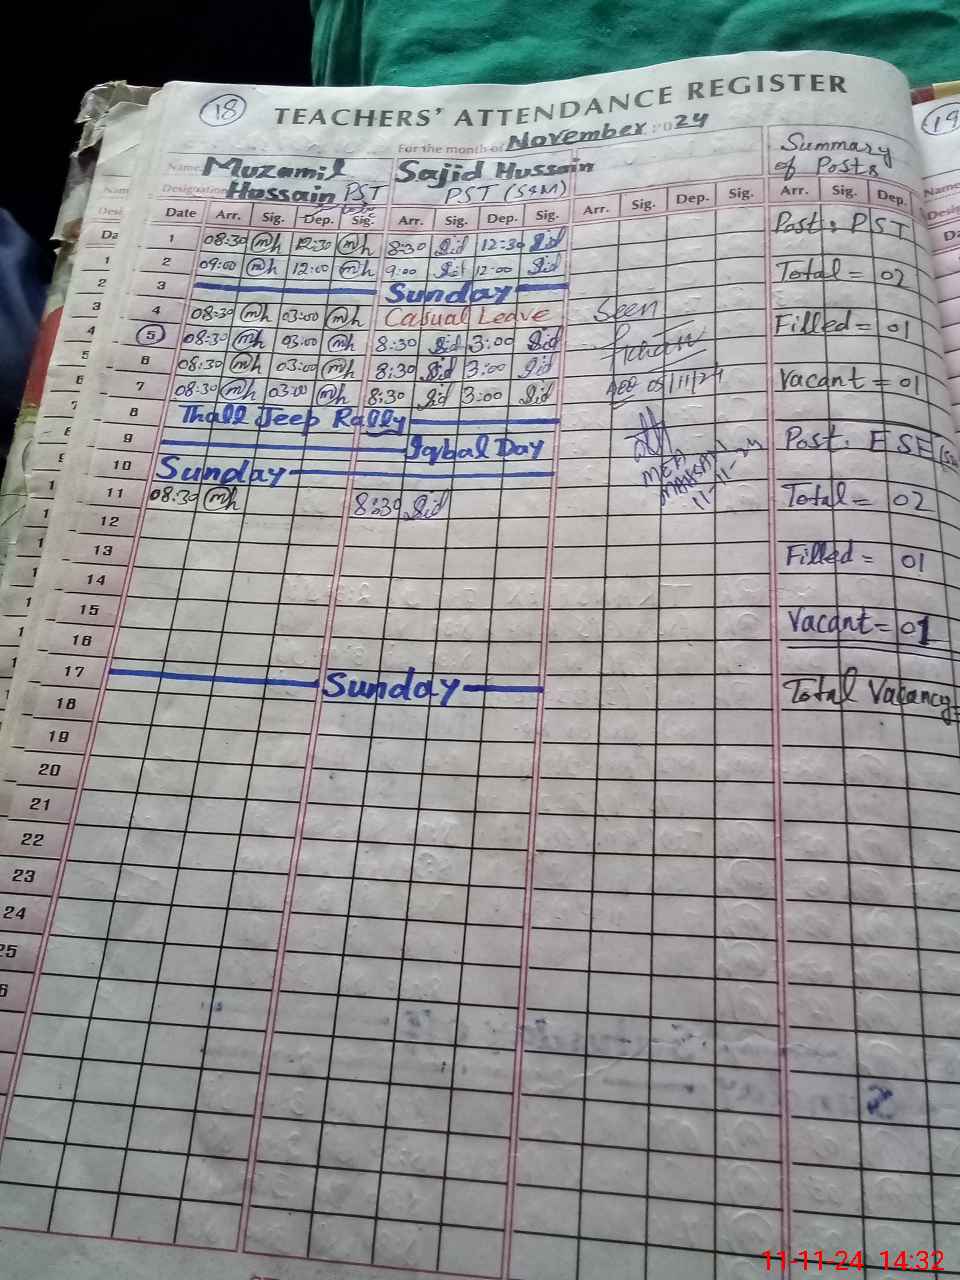 18 TEACHERS' ATTENDANCE REGISTER 19
For the month of November 2024
Name Muzamil Hussain Sajid Hussain Summary of Posts
Designation PST PST (S&M)
Date Arr. Sig. Dep. Sig. Arr. Sig. Dep. Sig. Arr. Sig. Dep. Sig. Arr. Sig. Dep.
1 08:30 mh 12:30 mh 8:30 Sid 12:30 Sid Post: PST
2 09:00 mh 12:00 mh 9:00 Sid 12:00 Sid Total = 02
3 Sunday
4 08:30 mh 03:00 mh Casual Leave Seen Filled = 01
5 08:30 mh 03:00 mh 8:30 Sid 3:00 Sid
6 08:30 mh 03:00 mh 8:30 Sid 3:00 Sid Vacant = 01
7 08:30 mh 03:00 mh 8:30 Sid 3:00 Sid AEO 05/11/24
8 Thall Jeep Rally
9 Iqbal Day Post: ESE
10 Sunday MEA
11 08:30 mh 8:30 Sid 11-11-24 Total = 02
12
13 Filled = 01
14
15 Vacant = 01
16
17 Sunday Total Vacancy=
18
19
20
21
22
23
24
25
11-11-24 14:32